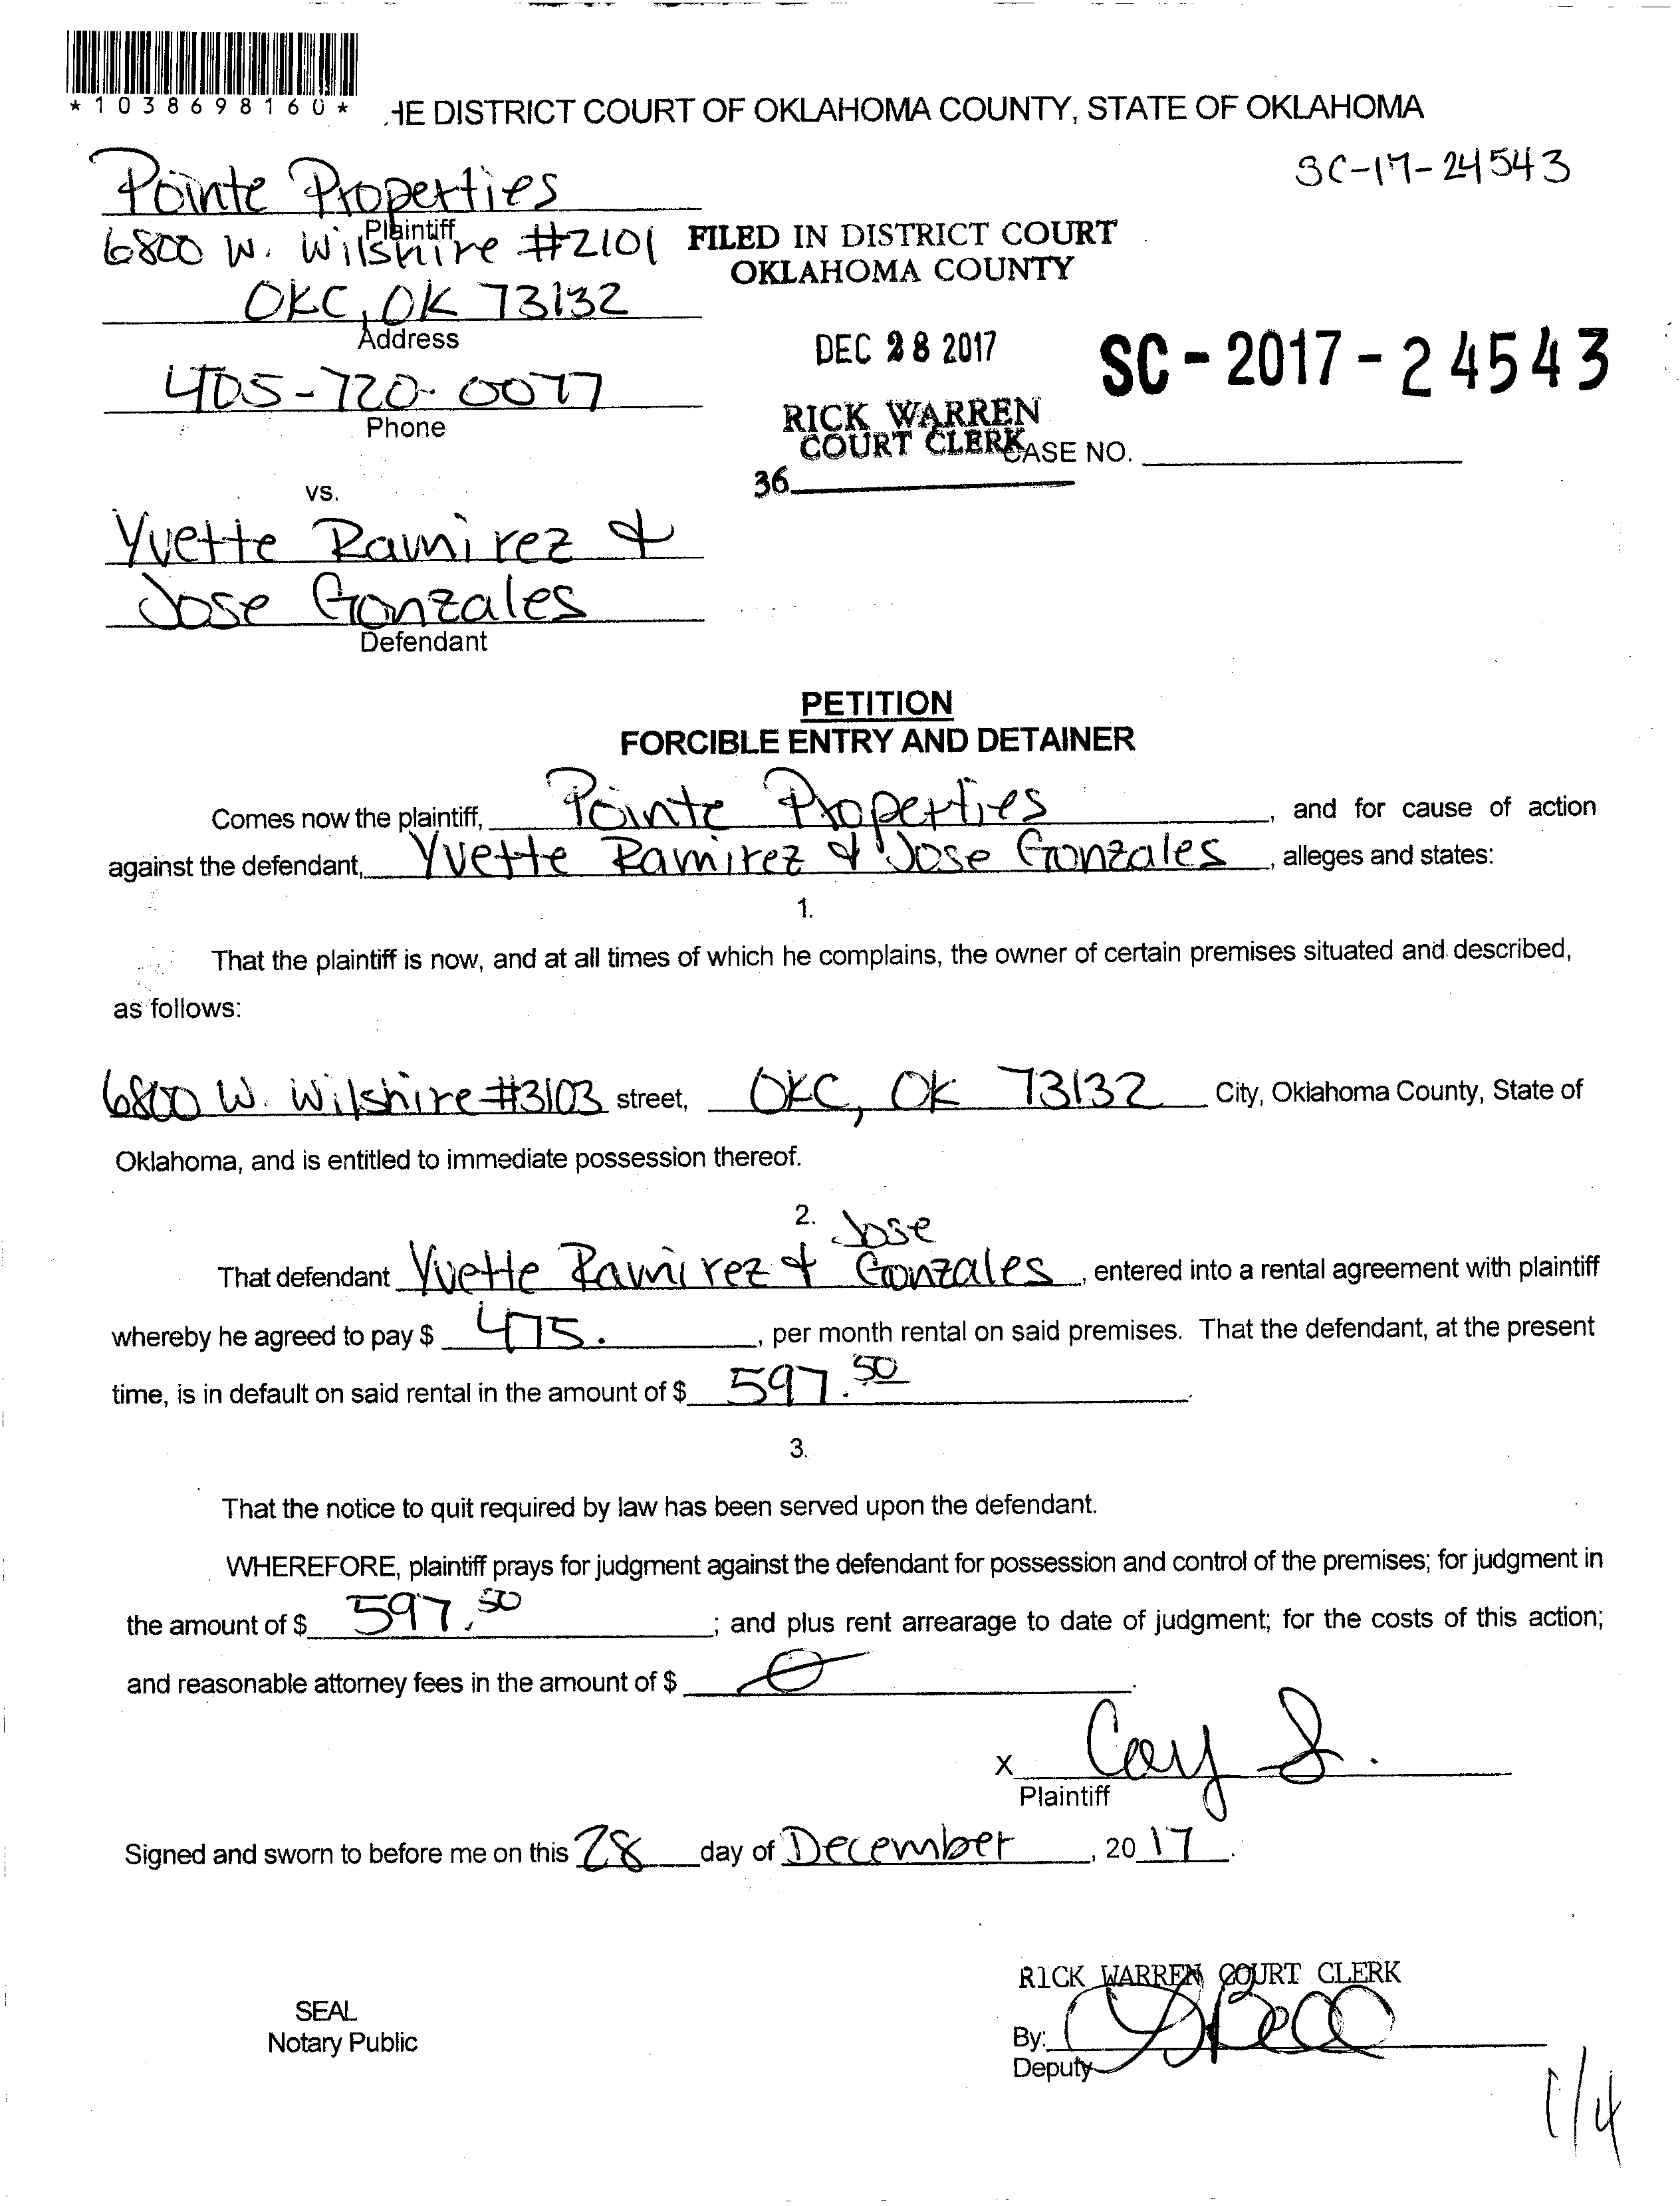 *1038698160*
HE DISTRICT COURT OF OKLAHOMA COUNTY, STATE OF OKLAHOMA
SC-17-24543
Pointe Properties
Plaintiff
6800 W. Wilshire #2101
FILED IN DISTRICT COURT
OKLAHOMA COUNTY
OKC, OK 73132
Address
DEC 28 2017
SC-2017-24543
405-720-0077
Phone
RICK WARREN
COURT CLERK
CASE NO.
36
vs.
Yvette Ramirez &
Jose Gonzales
Defendant
PETITION
FORCIBLE ENTRY AND DETAINER
Comes now the plaintiff, Pointe Properties, and for cause of action
against the defendant, Yvette Ramirez & Jose Gonzales, alleges and states:
1.
That the plaintiff is now, and at all times of which he complains, the owner of certain premises situated and described,
as follows:
6800 W. Wilshire #3103 street, OKC, OK 73132 City, Oklahoma County, State of
Oklahoma, and is entitled to immediate possession thereof.
2.
That defendant Yvette Ramirez & Jose Gonzales, entered into a rental agreement with plaintiff
whereby he agreed to pay $ 475., per month rental on said premises. That the defendant, at the present
time, is in default on said rental in the amount of $ 597.50.
3.
That the notice to quit required by law has been served upon the defendant.
WHEREFORE, plaintiff prays for judgment against the defendant for possession and control of the premises; for judgment in
the amount of $ 597.50; and plus rent arrearage to date of judgment; for the costs of this action;
and reasonable attorney fees in the amount of $ 0.
X
Plaintiff
Signed and sworn to before me on this 28 day of December, 2017.
RICK WARREN COURT CLERK
SEAL
Notary Public
By:
Deputy
1/4